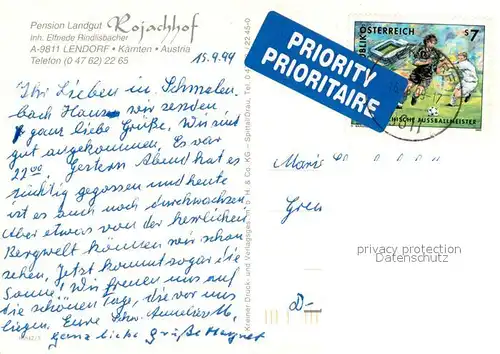 Pension Landgut Rojachhof
Inh. Elfriede Rindlisbacher
A-9811 LENDORF • Kärnten • Austria
Telefon (0 47 62) 22 65
15.9.99
Ihr Lieben in Schmalen-
bach Haus wir senden
ganz liebe Grüße. Wir sind
gut angekommen. Es war
22.00. Gestern Abend hat es
tüchtig gegossen und heute
ist es auch noch durchwachsen
Aber etwas von der herrlichen
Bergwelt können wir schon
sehen. Jetzt kommt sogar die
Sonne. Wir freuen uns auf
die schönen Tage, die vor uns
liegen. Eure Schw. Annelies M.
ganz liebe Grüße Margret
Kreiner Druck- und Verlagsges.m.b.H. & Co. KG – Spittal/Drau, Tel. 0 22 45-0
PRIORITY
PRIORITAIRE
REPUBLIK ÖSTERREICH
S 7
ISCHER FUSSBALLMEISTER
Marie
Gren
D-
privacy protection
Datenschutz